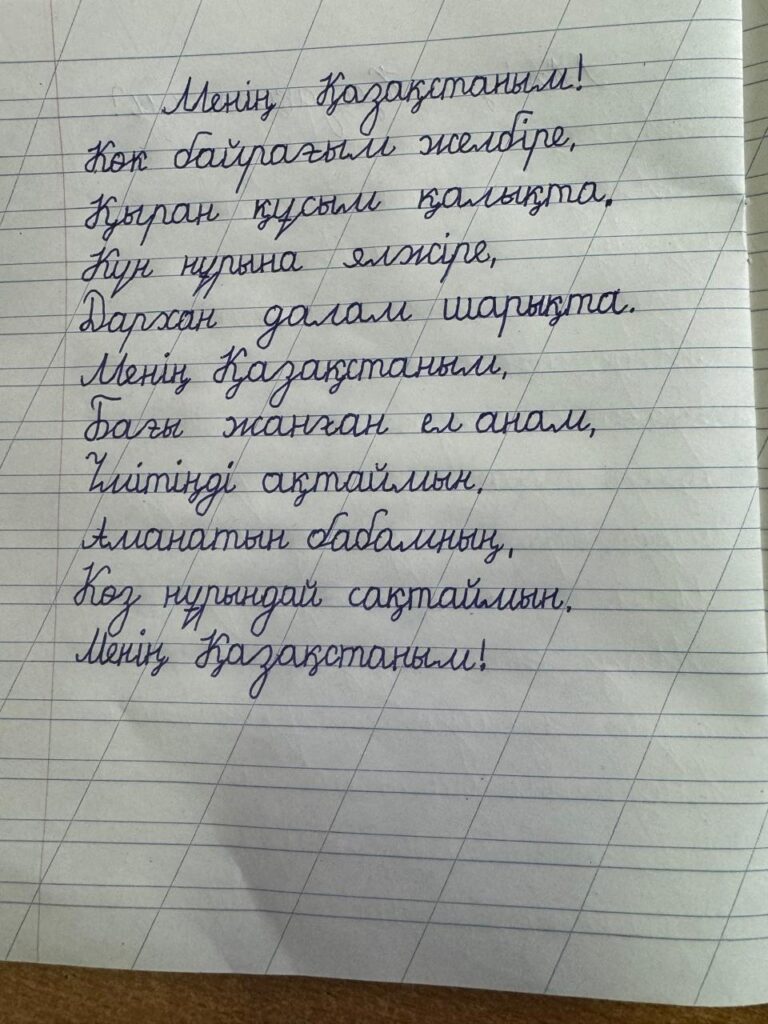 Менің Қазақстаным!
Көк байрағым желбіре,
Қыран құсым қалықта.
Күн нұрына елжіре,
Дархан далам шарықта.
Менің Қазақстаным,
Бағы жанған ел анам,
Үмітіңді ақтаймын.
Аманатын бабамның,
Көз нұрындай сақтаймын.
Менің Қазақстаным!